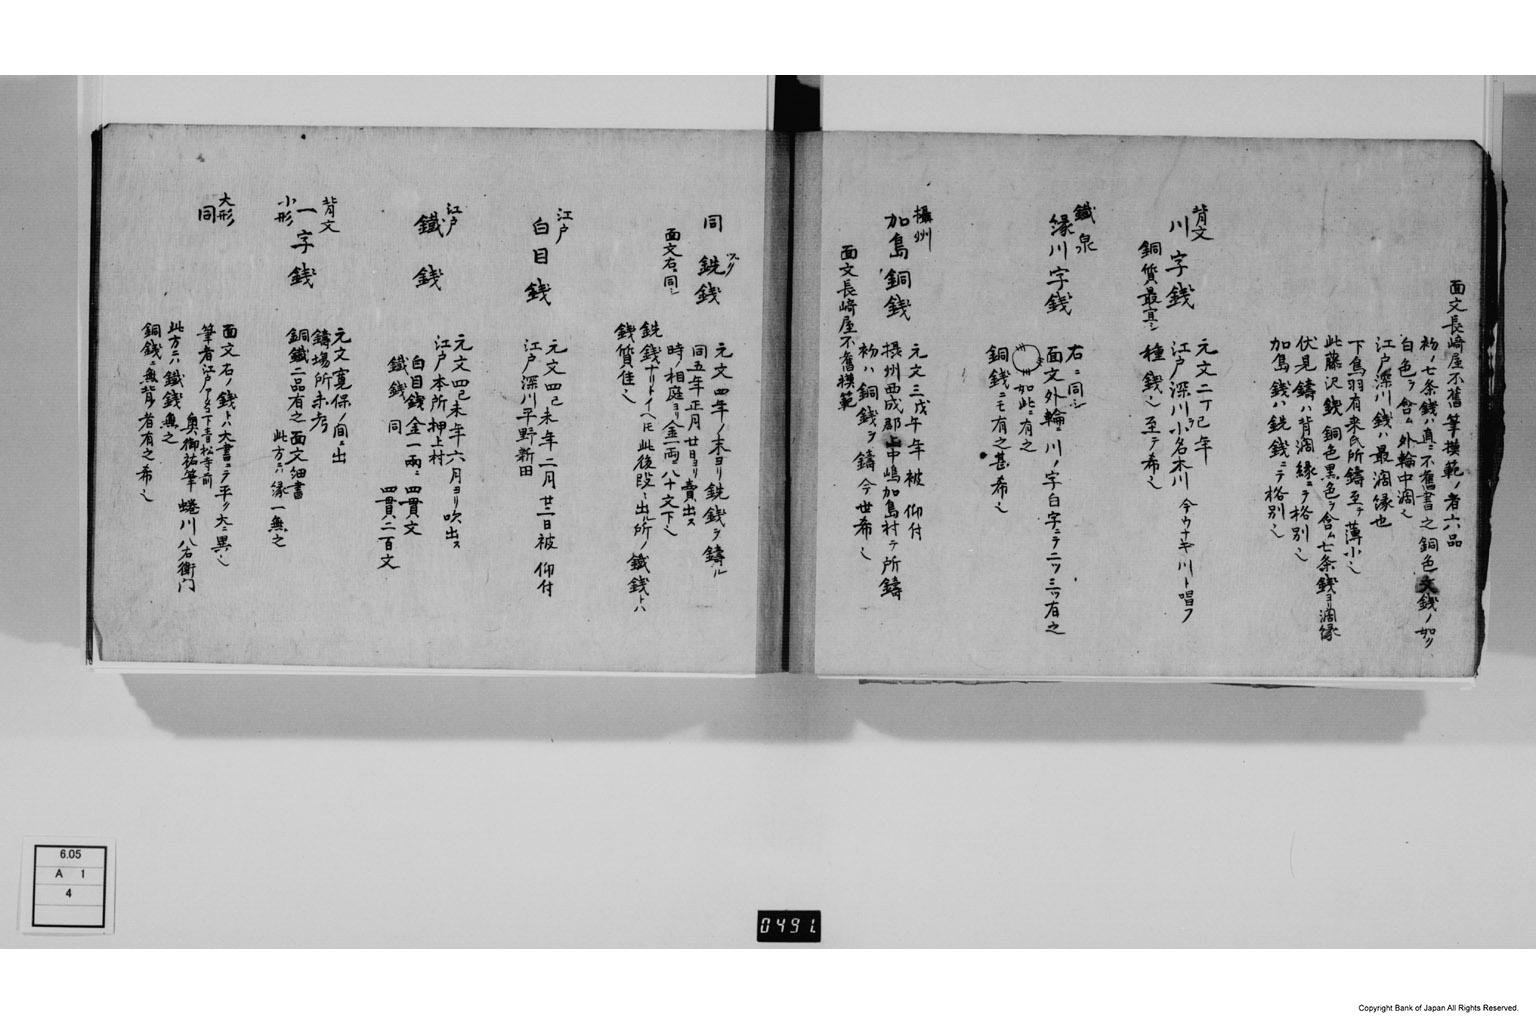 面文長崎屋不舊筆模範ノ者六品
初ノ七条銭ハ真ニ不舊書之銅色文銭ノ如ク
白色ヲ含ム外輪中濶シ
江戸深川銭ハ最濶縁也
下鳥羽有来氏所鑄至テ薄小シ
此藤沢銭銅色黒色ヲ含ム七条銭ヨリ濶縁
伏見鑄ハ背濶縁ニテ格別シ
加島銭ハ銑銭ニテ格別シ
背文
川字銭
銅質最宜シ
元文二丁巳年
江戸深川小名木川 今ウナギ川ト唱フ
種銭シ至テ希シ
鐵泉
縁川字銭
右ニ同シ
面文外輪ニ川ノ字白字ニテ二ツ三ツ有之
如此ニ有之
銅銭ニモ有之甚希シ
攝州
加島銅銭
面文長崎屋不舊模範
元文三戊午年被 仰付
摂州西成郡上中嶋加島村テ所鑄
初ハ銅銭ヲ鑄今世希シ
同 銑銭
ズク
面文右ニ同シ
元文四年ノ末ヨリ銑銭ヲ鑄ル
同五年正月廿日ヨリ賣出ス
時ノ相庭ヨリ金一両ニ八十文下シ
銑銭ナリトイヘトモ此後段々出ル所ノ鐵銭トハ
銭質佳シ
江戸
白目銭
元文四己未年二月廿三日被 仰付
江戸深川平野新田
江戸
鐵 銭
元文四己未年六月ヨリ吹出ス
江戸本所押上村
白目銭金一両ニ四貫文
鐵銭 同 四貫二百文
背文
一字銭
小形
元文寛保ノ間ニ出
鑄場所未考
銅鐵二品有之面文細書
此方ニハ縁一無之
大形
同
面文右ノ銭トハ大書ニテ平ク大ニ異シ
筆者江戸アタゴ下青松寺前
奥御祐筆 蜷川八右衛门
此方ニハ鐵銭無之
銅銭ニ無背ノ者有之希シ
6.05
A 1
4
0491.
Copyright Bank of Japan All Rights Reserved.